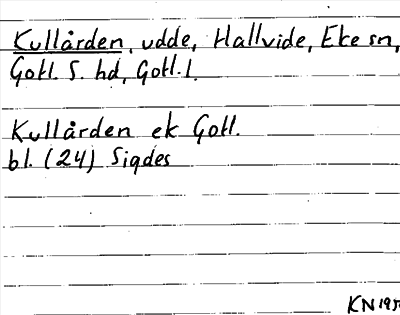 Kullården, udde, Hallvide, Eke sn,
Gotl. S. hd, Gotl. l.
Kullården ek Gotl.
bl. (24) Sigdes